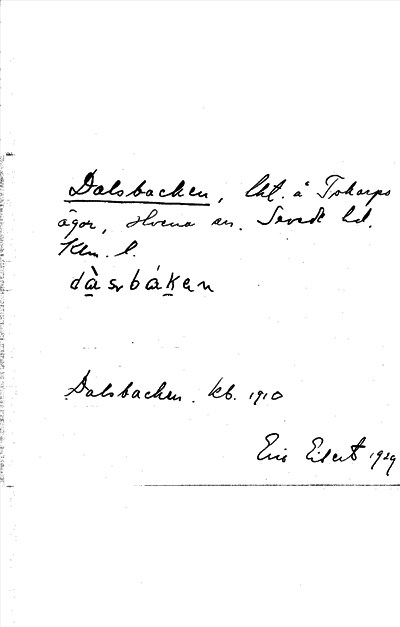 Dalsbacken, lht. å Toharps
ägor, Hvena sn. Sevede hd.
Klm. l.
dàsbákan
Dalsbacken. kb. 1910
Eric Eilert 1929